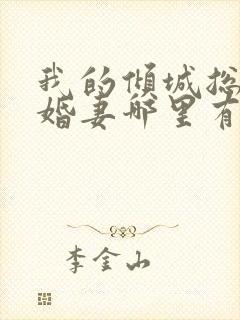 我的倾城总
婚妻那里有
李金山